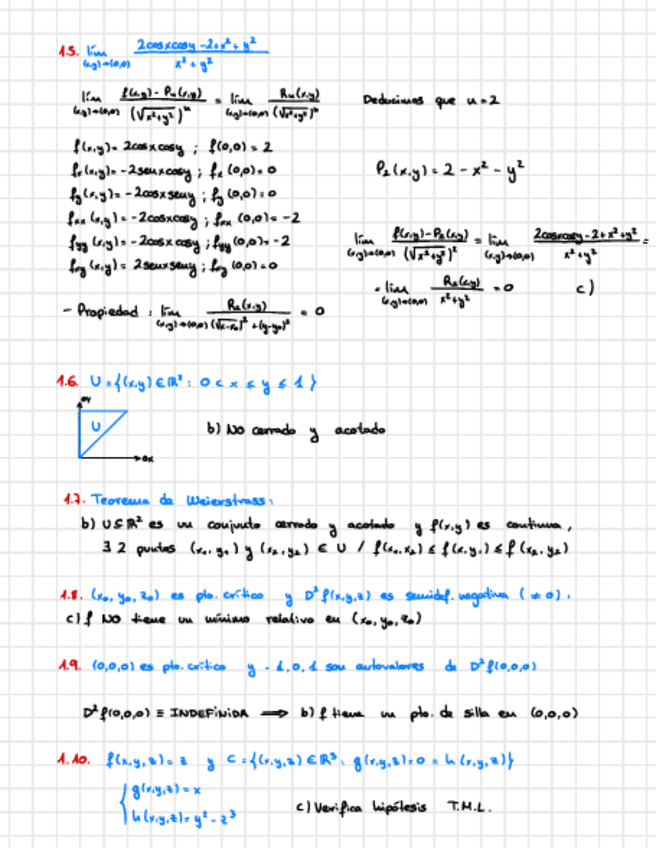 1.5. lím (x,y)→(0,0) (2cosxcosy - 2 + x² + y²) / (x² + y²)
lím (x,y)→(0,0) (f(x,y) - Pn(x,y)) / (√x²+y²)ⁿ = lím (x,y)→(0,0) Rn(x,y) / (√x²+y²)ⁿ Deducimos que n=2
f(x,y)= 2cosxcosy ; f(0,0)= 2
fx(x,y)= -2senxcosy ; fx(0,0)= 0
P2(x,y)= 2 - x² - y²
fy(x,y)= -2cosxseny ; fy(0,0)= 0
fxx(x,y)= -2cosxcosy ; fxx(0,0)= -2
fyy(x,y)= -2cosxcosy ; fyy(0,0)= -2
lím (x,y)→(0,0) (f(x,y) - P2(x,y)) / (√x²+y²)² = lím (x,y)→(0,0) (2cosxcosy - 2 + x² + y²) / (x² + y²) =
fxy(x,y)= 2senxseny ; fxy(0,0)= 0
= lím (x,y)→(0,0) R2(x,y) / (x²+y²) = 0 c)
- Propiedad : lím (x,y)→(0,0) R2(x,y) / (√x-x0)² + (y-y0)² = 0
1.6. U={(x,y)∈R² : 0 < x ≤ y ≤ 1}
OY
U
b) No cerrado y acotado
OX
1.7. Teorema de Weierstrass:
b) U⊆R² es un conjunto cerrado y acotado y f(x,y) es continua,
∃ 2 puntos (x1,y1) y (x2,y2) ∈ U / f(x1,x2) ≤ f(x,y) ≤ f(x2,y2)
1.8. (x0,y0,z0) es pto. crítico y D²f(x,y,z) es semidef. negativa (≠0).
c) f NO tiene un mínimo relativo en (x0,y0,z0)
1.9. (0,0,0) es pto. crítico y -1,0,1 son autovalores de D²f(0,0,0)
D²f(0,0,0) ≡ INDEFINIDA ⟹ b) f tiene un pto. de silla en (0,0,0)
1.10. f(x,y,z)= z y C={(x,y,z)∈R³: g(x,y,z)=0=h(x,y,z)}
g(x,y,z)= x
c) Verifica hipótesis T.M.L.
h(x,y,z)= y² - z³